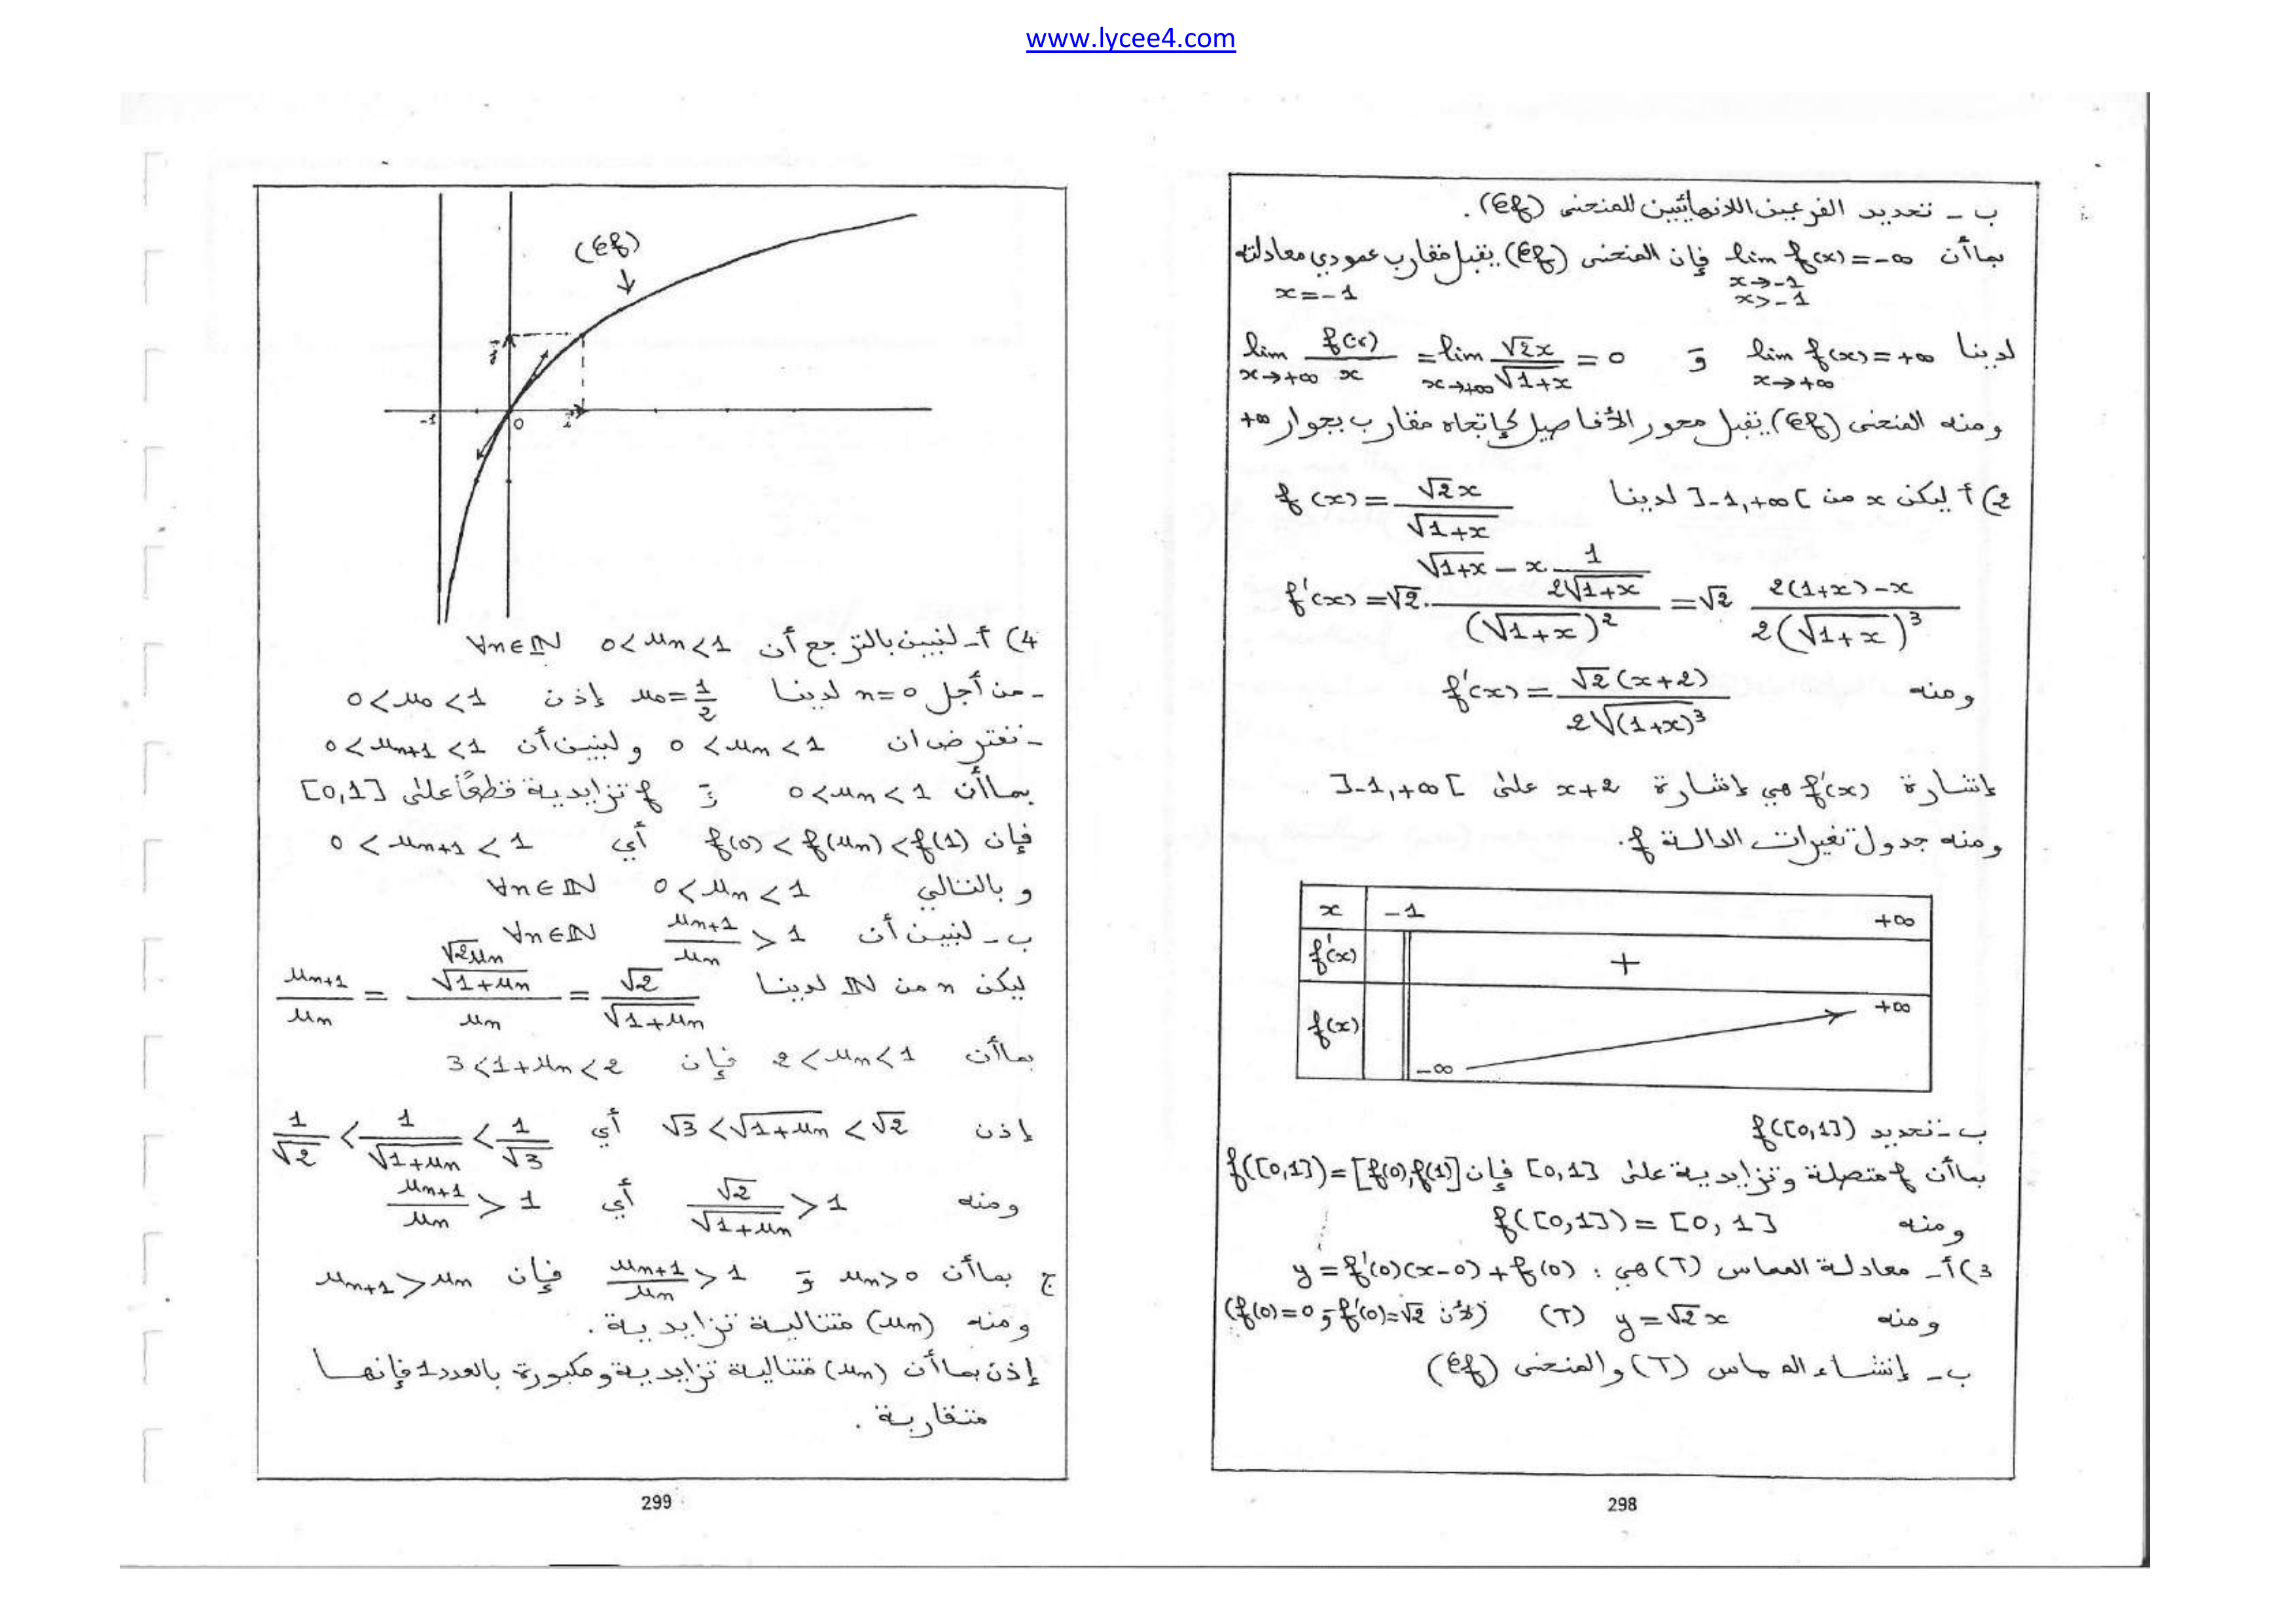 www.lycee4.com
ب - تحديد الفرعين اللانهائيين للمنحنى (Cf).
بما أن lim f(x) = -∞ فإن المنحنى (Cf) يقبل مقارب عمودي معادلته
x→-1
x>-1
x = -1
لدينا lim f(x) = +∞ و lim f(x)/x = lim √2x/√(1+x) = 0
x→+∞ x→+∞ x→+∞
ومنه المنحنى (Cf) يقبل محور الأفاصيل كإتجاه مقارب بجوار +∞
2) أ ليكن x من ]-1,+∞[ لدينا f(x) = √2x/√(1+x)
f'(x) = √2 · (√(1+x) - x · 1/(2√(1+x)))/(√(1+x))² = √2 (2(1+x)-x)/(2(√(1+x))³)
ومنه f'(x) = √2(x+2)/(2√(1+x)³)
إشارة f'(x) هي إشارة x+2 على ]-1,+∞[
ومنه جدول تغيرات الدالة f.
x -1 +∞
f'(x) +
f(x) -∞ +∞
ب - تحديد f([0,1])
بما أن f متصلة وتزايدية على [0,1] فإن f([0,1]) = [f(0),f(1)]
ومنه f([0,1]) = [0,1]
3) أ - معادلة المماس (T) هي : y = f'(0)(x-0) + f(0)
ومنه y = √2x (T) (لأن f'(0)=√2 و f(0)=0)
ب - إنشاء المماس (T) والمنحنى (Cf)
298
(Cf)
j
-1 0 i
4) أ - لنبين بالترجع أن 0<un<1 ∀n∈IN
- من أجل n=0 لدينا u0 = 1/2 إذن 0<u0<1
- نفترض ان 0<un<1 ولنبين أن 0<un+1<1
بما أن 0<un<1 و f تزايدية قطعًا على [0,1]
فإن f(0)<f(un)<f(1) أي 0<un+1<1
وبالتالي 0<un<1 ∀n∈IN
ب - لنبين أن un+1/un > 1 ∀n∈IN
ليكن n من IN لدينا un+1/un = (√2un/√(1+un))/un = √2/√(1+un)
بما أن 2<un<1 فإن 3<1+un<2
إذن √3<√(1+un)<√2 أي 1/√2 < 1/√(1+un) < 1/√3
ومنه √2/√(1+un) > 1 أي un+1/un > 1
ج بما أن un>0 و un+1/un > 1 فإن un+1>un
ومنه (un) متتالية تزايدية.
إذن بما أن (un) متتالية تزايدية ومكبورة بالعدد 1 فإنها
متقاربة.
299